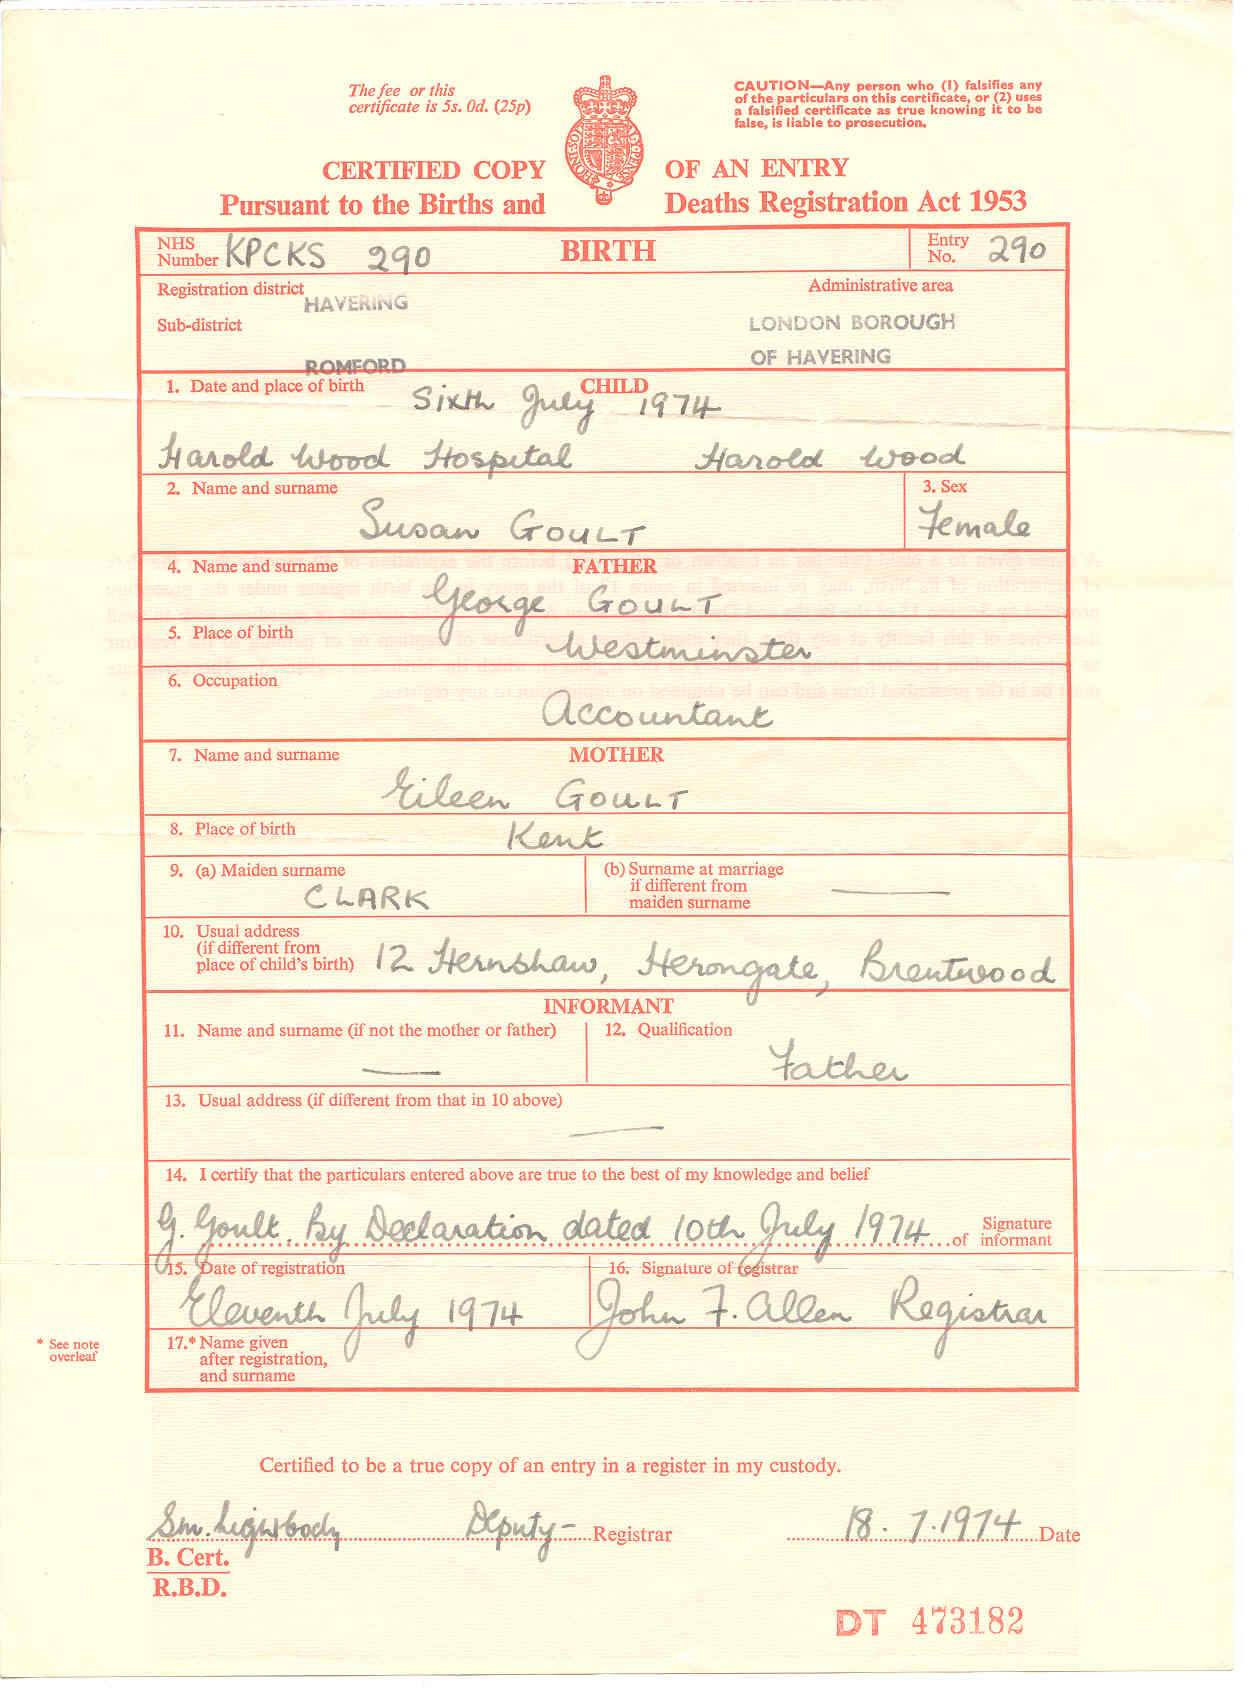 The fee or this
certificate is 5s. 0d. (25p)
CAUTION—Any person who (1) falsifies any
of the particulars on this certificate, or (2) uses
a falsified certificate as true knowing it to be
false, is liable to prosecution.
CERTIFIED COPY OF AN ENTRY
Pursuant to the Births and Deaths Registration Act 1953
NHS Number KPCKS 290
BIRTH
Entry No. 290
Registration district
HAVERING
Administrative area
Sub-district
LONDON BOROUGH
ROMFORD
OF HAVERING
1. Date and place of birth
CHILD
Sixth July 1974
Harold Wood Hospital Harold Wood
2. Name and surname
3. Sex
Susan GOULT
Female
4. Name and surname
FATHER
George GOULT
5. Place of birth
Westminster
6. Occupation
Accountant
7. Name and surname
MOTHER
Eileen GOULT
8. Place of birth
Kent
9. (a) Maiden surname
CLARK
(b) Surname at marriage
if different from
maiden surname
10. Usual address
(if different from
place of child's birth)
12 Hernshaw, Herongate, Brentwood
INFORMANT
11. Name and surname (if not the mother or father)
12. Qualification
Father
13. Usual address (if different from that in 10 above)
14. I certify that the particulars entered above are true to the best of my knowledge and belief
G. Goult. By Declaration dated 10th July 1974
Signature
of informant
15. Date of registration
16. Signature of registrar
Eleventh July 1974
John F. Allen Registrar
* See note
overleaf
17.* Name given
after registration,
and surname
Certified to be a true copy of an entry in a register in my custody.
Sm. Lightbody Deputy- Registrar 18. 7. 1974 Date
B. Cert.
R.B.D.
DT 473182